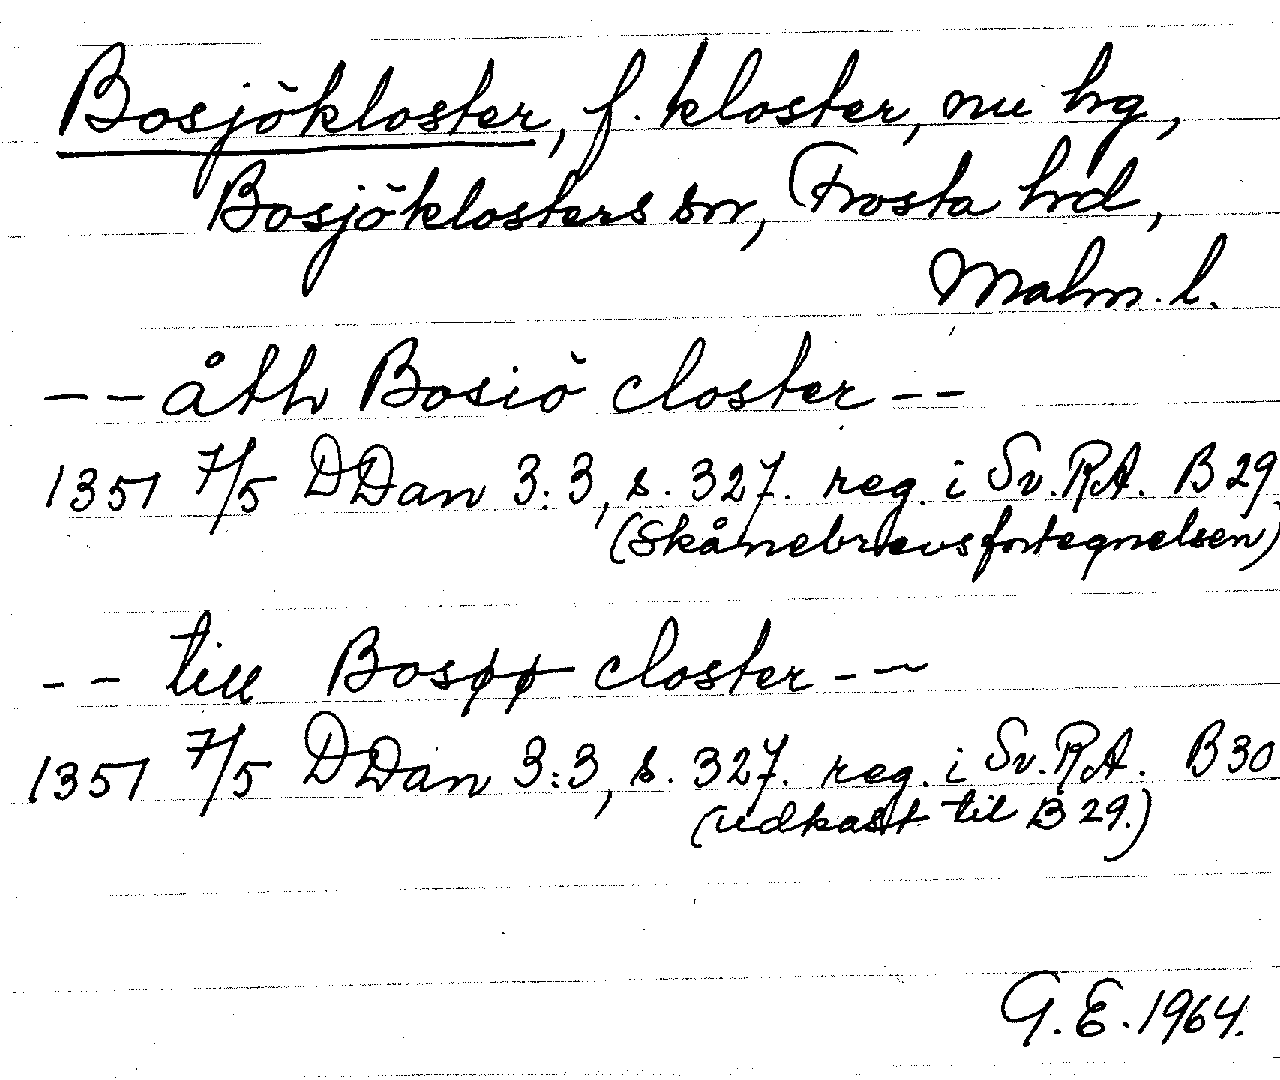 Bosjökloster, f. kloster, nu hg,
Bosjöklosters sn, Frosta hd,
Malm. l.
-- åth Bosiö closter --
1351 7/5 DDan 3:3, s. 327. reg. i Sv. RA. B 29.
(Skånebrevsfortegnelsen)
-- till Bosøø closter --
1351 7/5 DDan 3:3, s. 327. reg. i Sv. RA. B 30
(udkast til B 29.)
G. E. 1964.